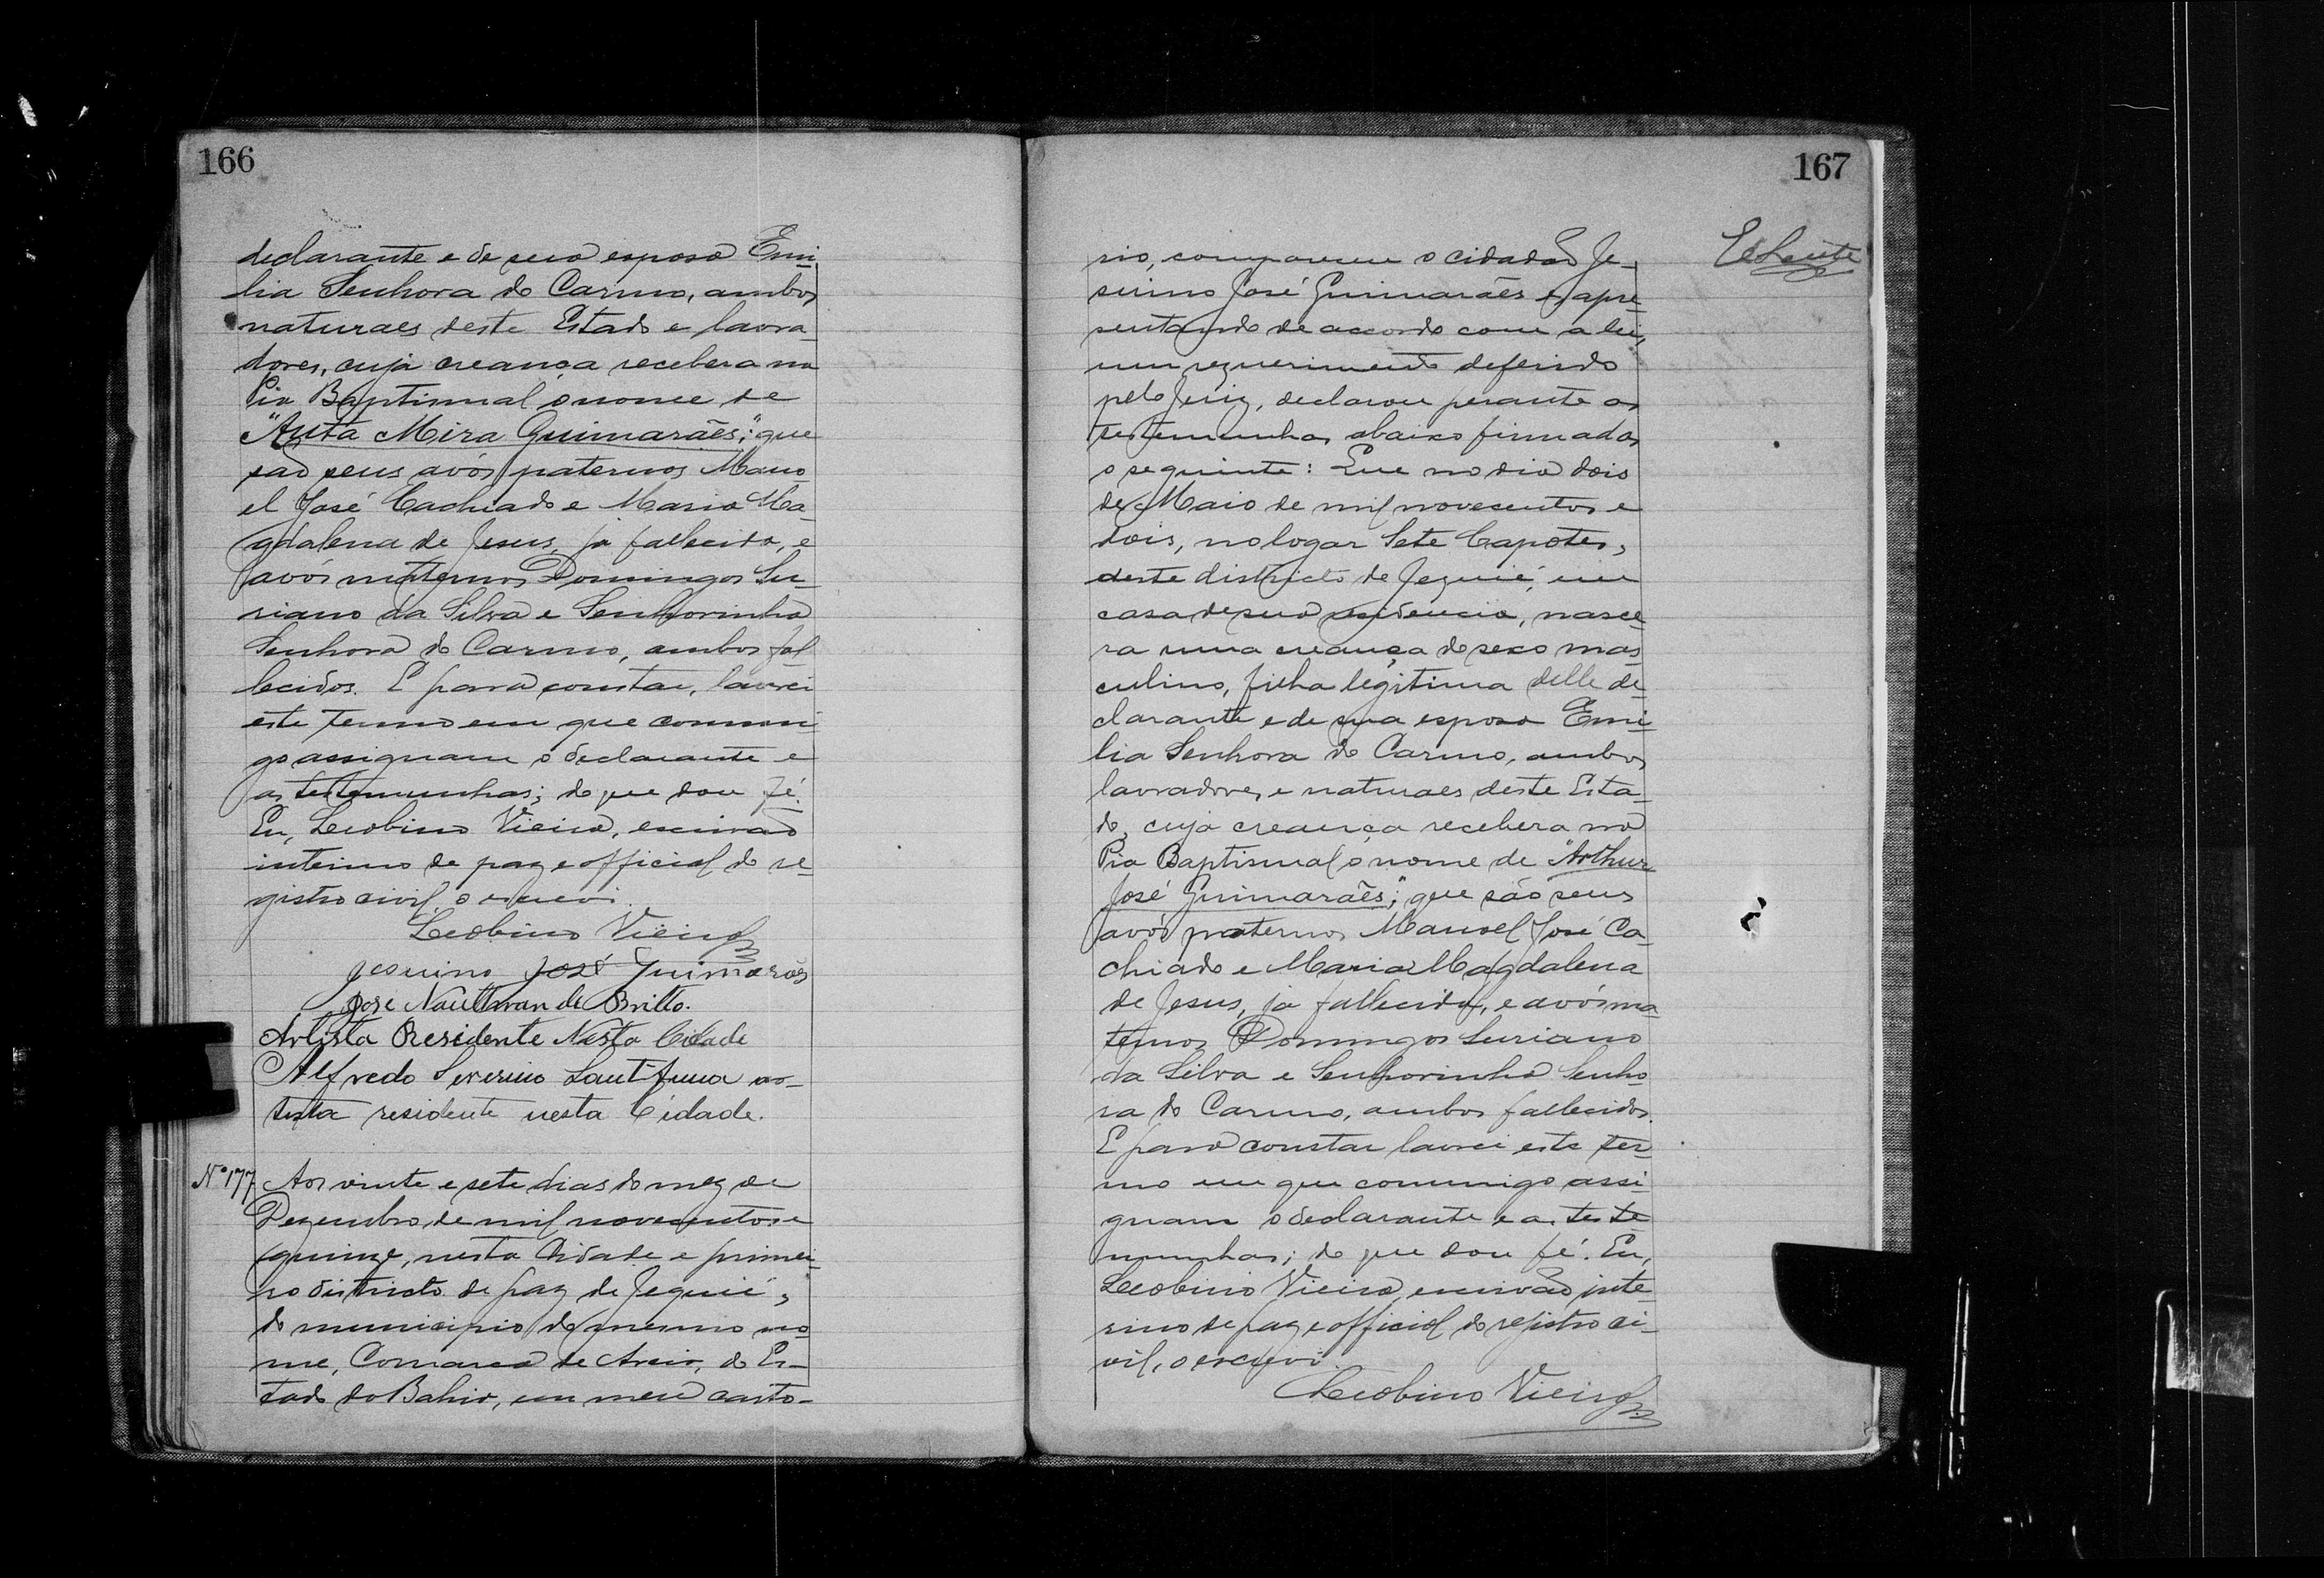 166
declarante e de sua esposa Emi-
lia Senhora do Carmo, ambos
naturaes deste Estado e lavra-
dores, cuja creança recebera na
Pia Baptismal o nome de
"Auta Mira Guimarães;" que
são seus avós paternos Mano-
el José Cachiado e Maria Ma-
gdalena de Jesus, já fallecida, e
avós maternos Domingos Su-
riano da Silva e Senhorinha
Senhora do Carmo, ambos fal-
lecidos. E para constar, lavrei
este termo em que commi-
go assignam o declarante e
as testemunhas; do que dou fé.
Eu, Leobino Vieira, escrivão
interino de paz e official do re-
gistro civil, o escrevi.
Leobino Vieira
Jesuino José Guimarães
José de Britto.
Artista Residente Nesta Cidade
Alfredo Severino Sant'Anna ar-
tista residente nesta Cidade.
Nº 177 Aos vinte e sete dias do mez de
Dezembro, de mil novecentos e
quinze, nesta Cidade e primei-
ro districto de paz de Jequié,
do municipio do mesmo no-
me, Comarca de Areia, do Es-
tado da Bahia, em meu carto-
167
rio, compareceu o cidadão Je-
suino José Guimarães e, apre-
sentando de accordo com a lei,
um requerimento deferido
pelo Juiz, declarou perante as
testemunhas abaixo firmadas
o seguinte: Que no dia dois
de Maio de mil novecentos e
dois, no logar Sete Capotes,
deste districto de Jequié, em
casa de sua residencia, nasce-
ra uma creança do sexo mas-
culino, filha legitima delle de-
clarante e de sua esposa Emi-
lia Senhora do Carmo, ambos
lavradores e naturaes deste Esta-
do, cuja creança recebera na
Pia Baptismal o nome de "Arthur
José Guimarães;" que são seus
avós paternos Manoel José Ca-
chiado e Maria Magdalena
de Jesus, já fallecida, e avós ma-
ternos Domingos Suriano
da Silva e Senhorinha Senho-
ra do Carmo, ambos fallecidos.
E para constar lavrei este ter-
mo em que commigo assi-
gnam o declarante e as teste-
munhas; do que dou fé. Eu,
Leobino Vieira, escrivão inte-
rino de paz e official do registro ci-
vil, o escrevi.
Leobino Vieira